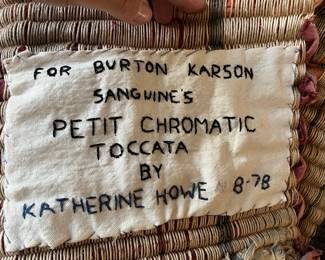 FOR BURTON KARSON
SANGUINE'S
PETIT CHROMATIC
TOCCATA
BY
KATHERINE HOWE 8-78